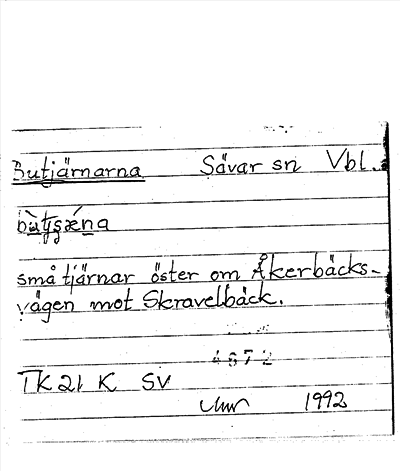 Butjärnarna Sävar sn Vbl.
små tjärnar öster om Åkerbäcks-
vägen mot Skravelbäck.
4672
TK 21 K SV
1992